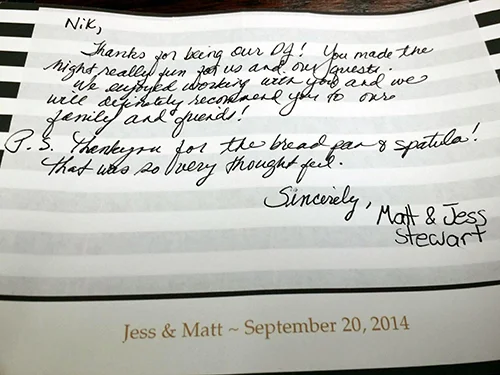 Nik,
Thanks for being our DJ! You made the
night really fun for us and our guests.
We enjoyed working with you and we
will definitely recommend you to our
family and friends!
P.S. Thankyou for the bread pan & spatula!
That was so very thoughtful.
Sincerely,
Matt & Jess
Stewart
Jess & Matt ~ September 20, 2014